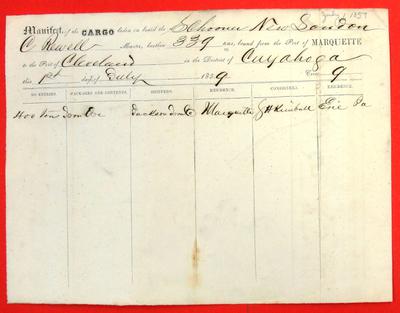 July 1859
Manifest of the CARGO laden on board the Schooner New London
C Rowell Master, burthen 339 tons, bound from the Port of MARQUETTE
to the Port of Cleveland in the District of Cuyahoga
this 1st day of July 1859 Crew 9
NO. ENTRIES. PACKAGES AND CONTENTS. SHIPPERS. RESIDENCE. CONSIGNEES. RESIDENCE.
400 ton Iron Ore Jackson Iron C Marquette J H Kimball Erie Pa